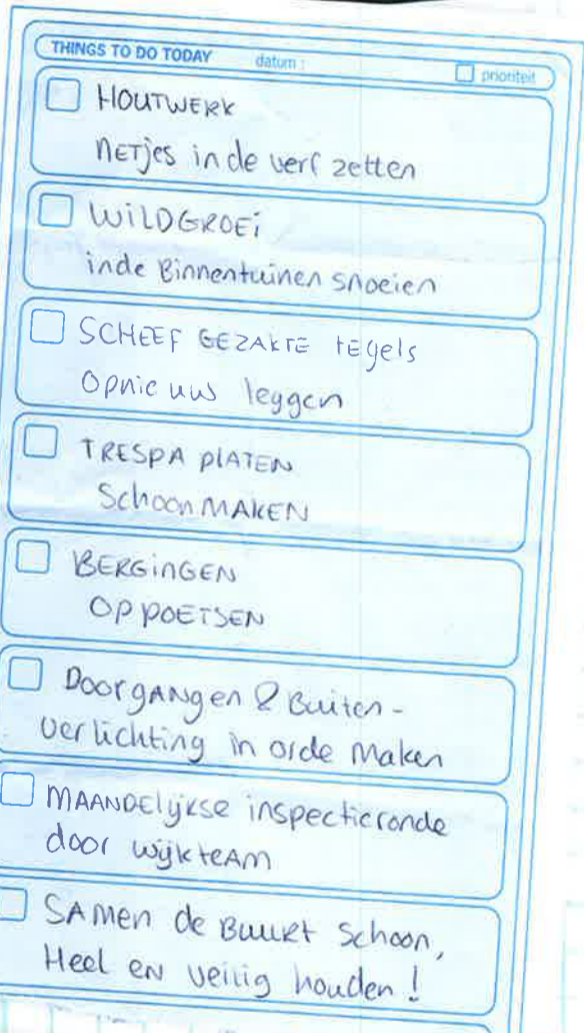 THINGS TO DO TODAY datum : prioriteit
HOUTWERK
NETjes in de verf zetten
WiLDGROEi
in de Binnentuinen snoeien
SCHEEF GEZAKTE tEgels
Opnieuw leggen
TRESPA plATEN
SchoonMAKEN
BERGiNGEN
OPPOETSEN
DoorgANgen & Buiten-
verlichting in orde maken
MAANDElijkse inspectieronde
door wijkteAM
SAMen de BuuRt schoon,
Heel eN veilig houden !